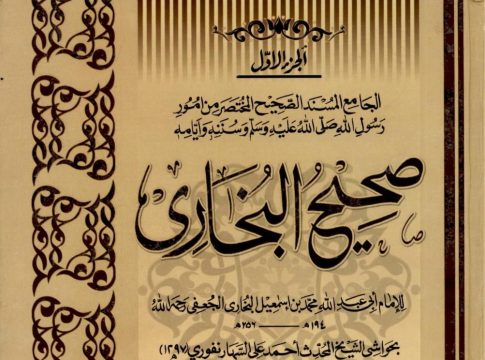 الجزء الاول
الجامع المسند الصحيح المختصر من امور
رسول الله صلى الله عليه وسلم وسننه وايامه
صحيح البخاري
للإمام أبي عبد الله محمد بن اسمعيل البخاري الجعفي رحمه الله
١٩٤ھ — ٢٥٦ھ
بحواشي الشيخ المحدث أحمد علي السهارنفوري (١٢٩٧)